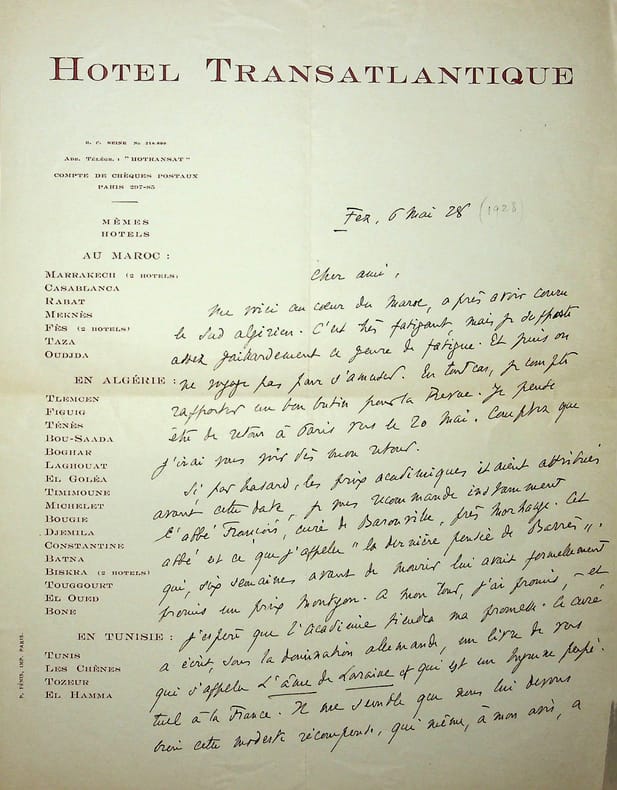 HOTEL TRANSATLANTIQUE
R. C. SEINE No 218.800
ADR. TÉLÉGR. : "HOTRANSAT"
COMPTE DE CHÈQUES POSTAUX
PARIS 297-85
MÊMES
HOTELS
AU MAROC :
MARRAKECH (2 HOTELS)
CASABLANCA
RABAT
MEKNÈS
FÈS (2 HOTELS)
TAZA
OUDJDA
EN ALGÉRIE :
TLEMCEN
FIGUIG
TÉNÈS
BOU-SAADA
BOGHAR
LAGHOUAT
EL GOLÉA
TIMIMOUNE
MICHELET
BOUGIE
DJEMILA
CONSTANTINE
BATNA
BISKRA (2 HOTELS)
TOUGGOURT
EL OUED
BONE
EN TUNISIE :
TUNIS
LES CHÊNES
TOZEUR
EL HAMMA
P. FÉNIS, IMP. PARIS.
Fez, 6 Mai 28 (1928)
Cher ami,
Me voici au cœur du Maroc, après avoir couru
le Sud algérien. C'est très fatigant, mais je supporte
assez gaillardement ce genre de fatigue. Et puis on
ne voyage pas pour s'amuser. En tout cas, je compte
rapporter un bon butin pour la Revue. Je pense
être de retour à Paris vers le 20 mai. Comptez que
j'irai vous voir dès mon retour.
Si, par hasard, les prix académiques étaient attribués
avant cette date, je vous recommande instamment
l'abbé François, curé de Baronville, près Morhange. Cet
abbé est ce que j'appelle "la dernière pensée de Barrès".
qui, six semaines avant de mourir lui avait formellement
promis un prix Montyon. A mon tour, j'ai promis, – et
j'espère que l'Académie tiendra ma promesse. Ce curé
a écrit sous la domination allemande, un livre de vers
qui s'appelle L'âme de Lorraine et qui est un hymne perpé-
tuel à la France. Il me semble que nous lui devons
bien cette modeste récompense, qui même, à mon avis, a